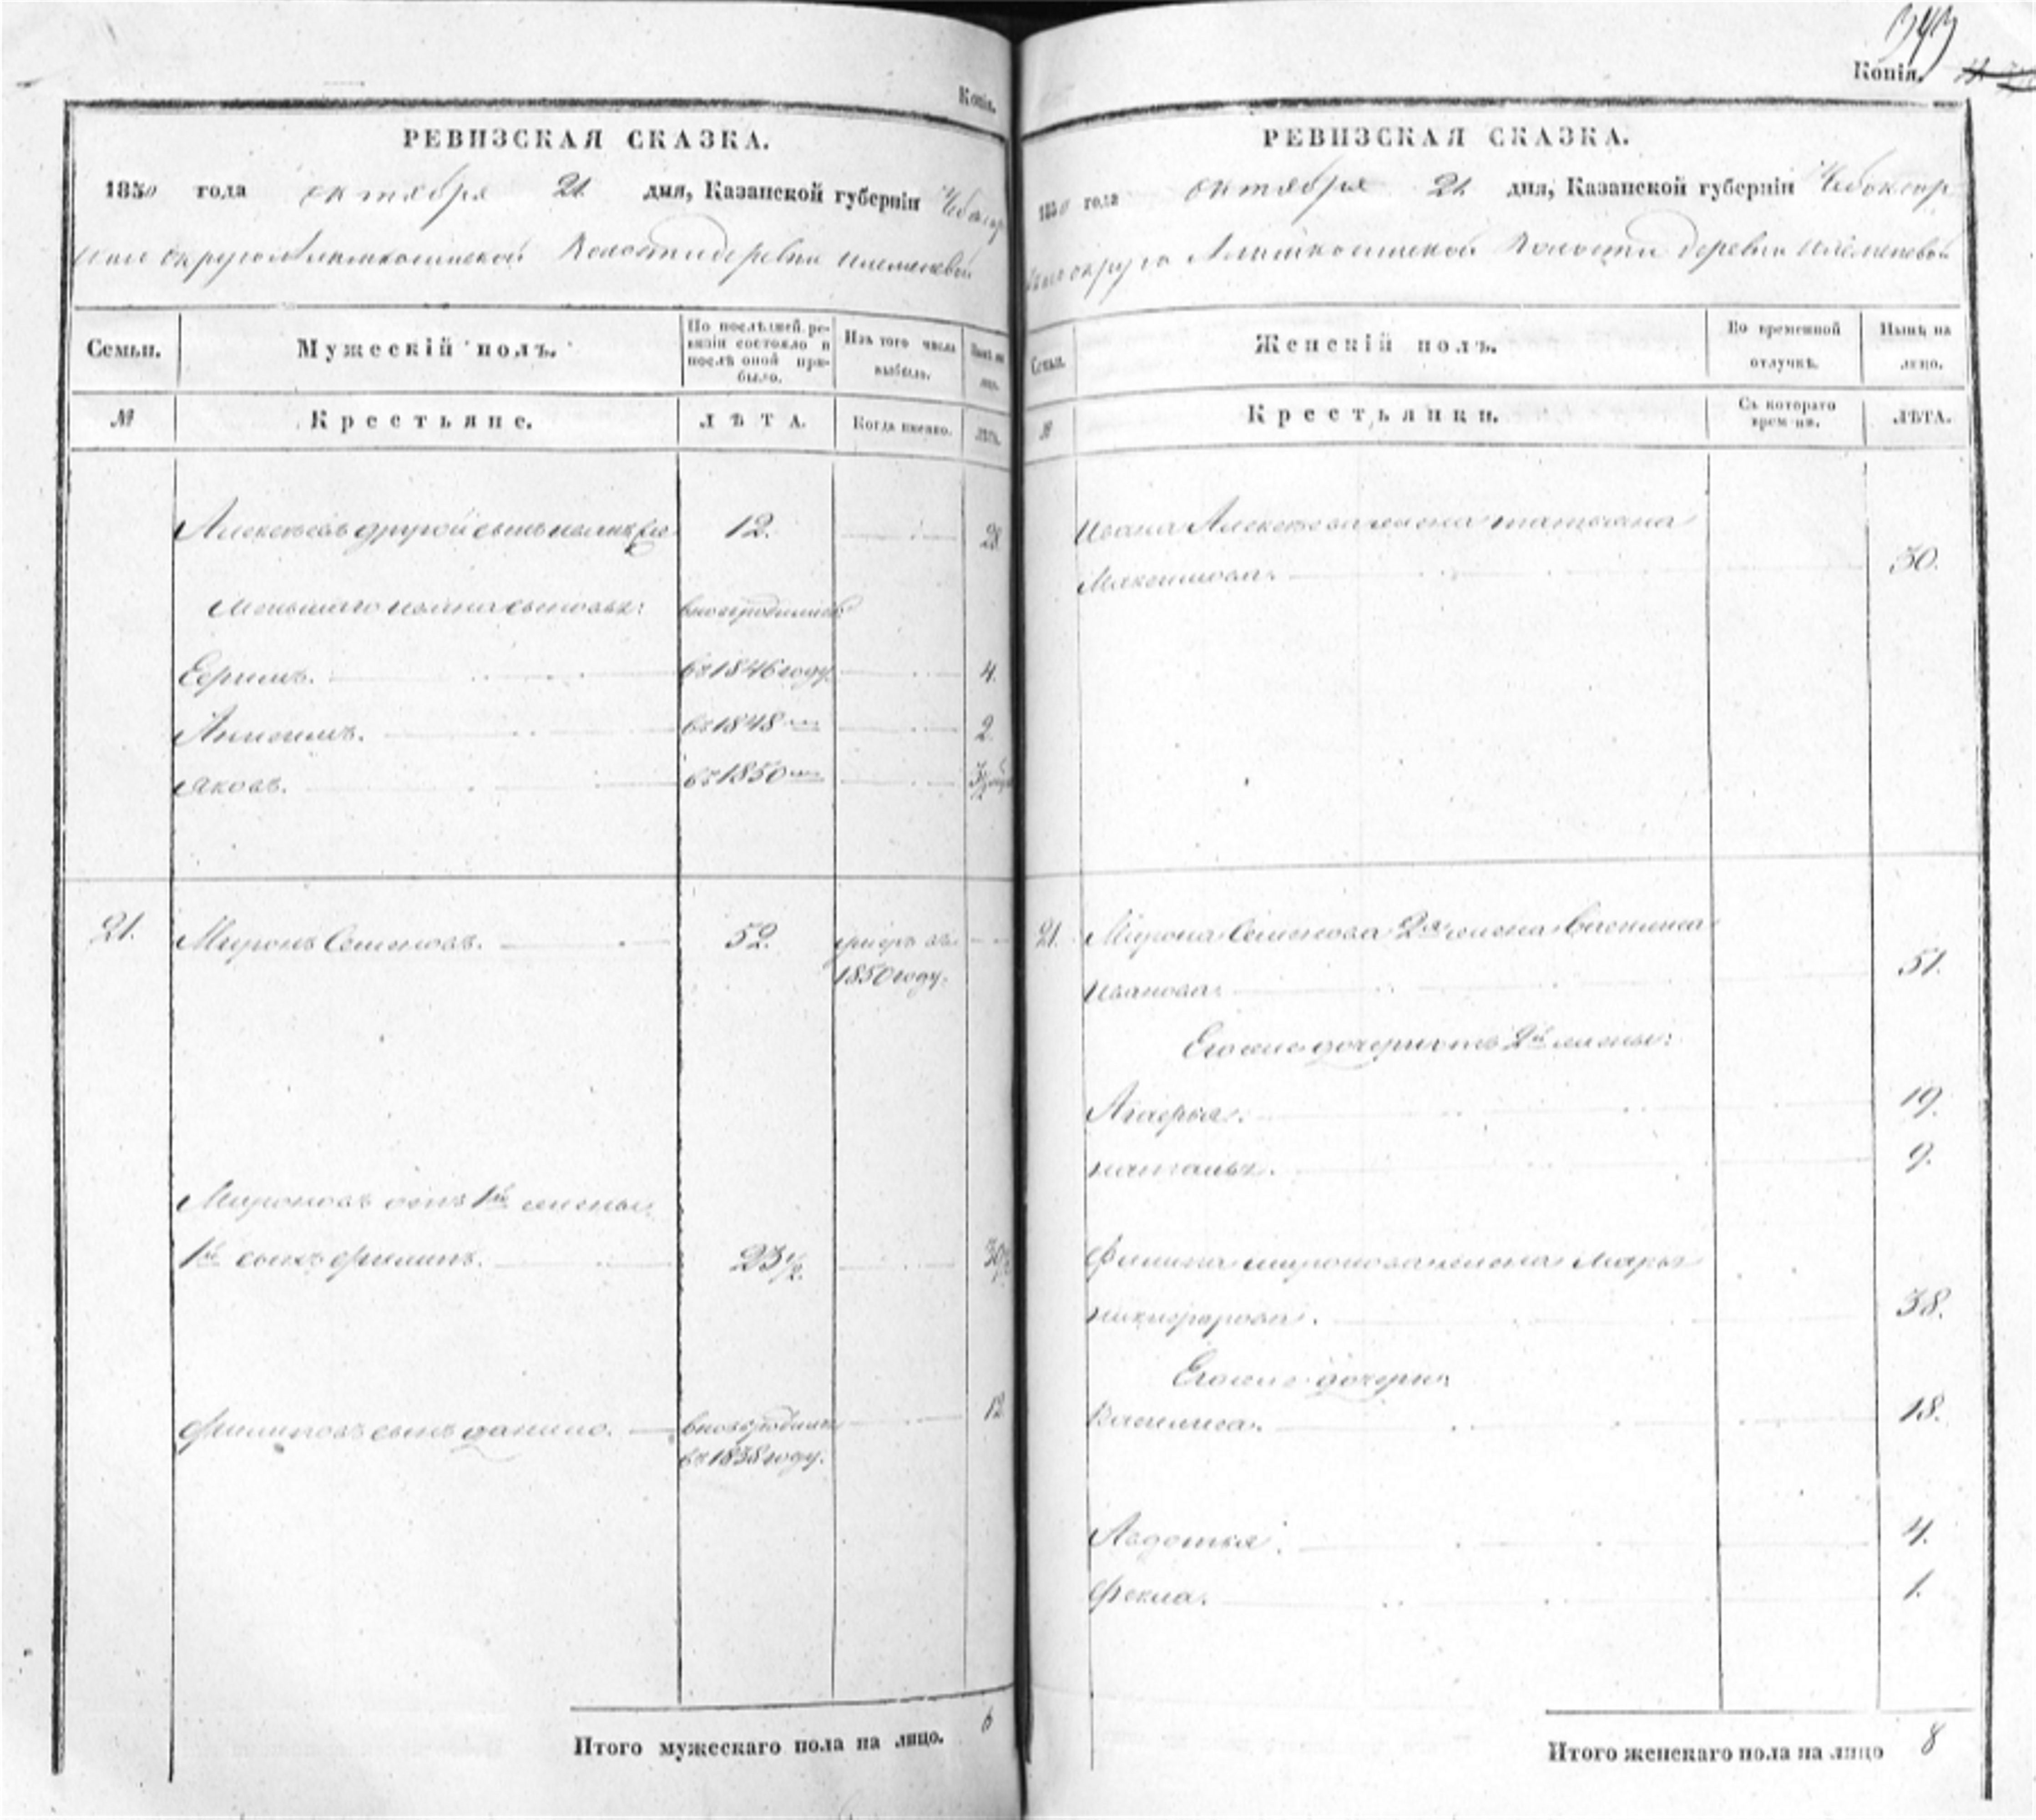 Копія.
РЕВИЗСКАЯ СКАЗКА.
1850 года октября 21 дня, Казанской губерніи Чебоксар
скаго округа Алымкасинской Волости деревни
Семьи.
Мужескій полъ.
По послѣдней ре-
визіи состояло и
послѣ оной при-
было.
Изъ того числа
выбыло.
Нынѣ на
лицо.
№
Крестьяне.
ЛѢТА.
Когда именно.
ЛѢТА.
Алексѣевъ другой сынъ 12. 28
меньшаго сыновья: вновь родились
Ефимъ. въ 1846 году. 4.
въ 1848 2.
Яковъ. въ 1850
21. Миронъ Семеновъ. 52. умеръ въ
1850 году.
Мироновъ отъ 1й жены
1й сынъ Филипъ. 23 1/2. 30
Филиповъ сынъ Данило. вновь родился 12
въ 1838 году.
Итого мужескаго пола на лицо. 6
343
Копія.
РЕВИЗСКАЯ СКАЗКА.
1850 года октября 21 дня, Казанской губерніи Чебоксар
скаго округа Алымкасинской Волости деревни
Семьи.
Женскій полъ.
Во временной
отлучкѣ.
Нынѣ на
лицо.
№
Крестьянки.
Съ котораго
времени.
ЛѢТА.
Ивана Алексѣева жена Татьяна
Максимова. 30.
21. Мирона Семенова 2я жена
Иванова. 51.
Его же дочери отъ 2й жены:
19.
Наталья. 9.
Филипа Миронова жена Марья
Никифорова. 38.
Его же дочери:
Василиса. 18.
Авдотья. 4.
Фекла. 1.
Итого женскаго пола на лицо 8